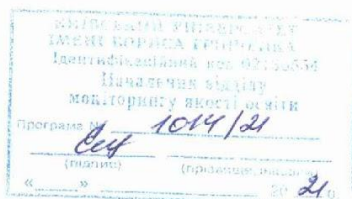 КИЇВСЬКИЙ УНІВЕРСИТЕТ
ІМЕНІ БОРИСА ГРІНЧЕНКА
Ідентифікаційний код 02136554
Начальник відділу
моніторингу якості освіти
Програма № 1014/21
(підпис) (прізвище, ініціали)
« » 20 21 р.